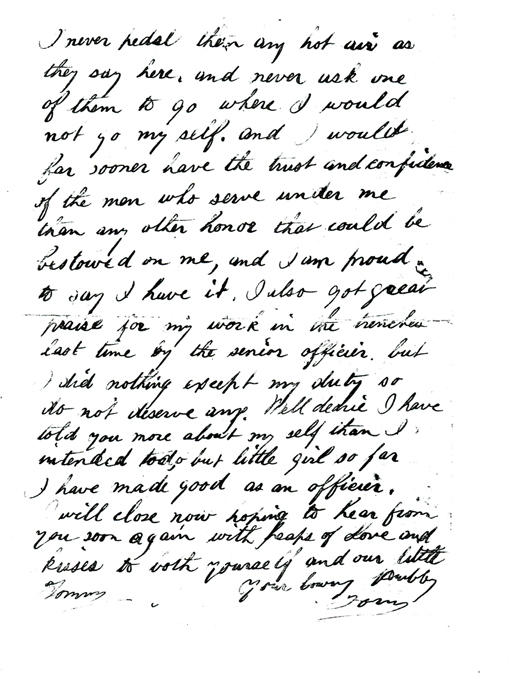 I never pedal them any hot air as
they say here, and never ask one
of them to go where I would
not go my self. and I would
far sooner have the trust and confidence
of the men who serve under me
than any other honor that could be
bestowed on me, and I am proud
to say I have it. I also got great
praise for my work in the trenches
last time by the senior officier. but
I did nothing except my duty so
do not deserve any. Well denie I have
told you more about my self than I
intended to do but little girl so far
I have made good as an officier.
I will close now hoping to hear from
you soon again with heaps of Love and
kisses to both yourself and our little
Tommy Your loving hubby
Tom